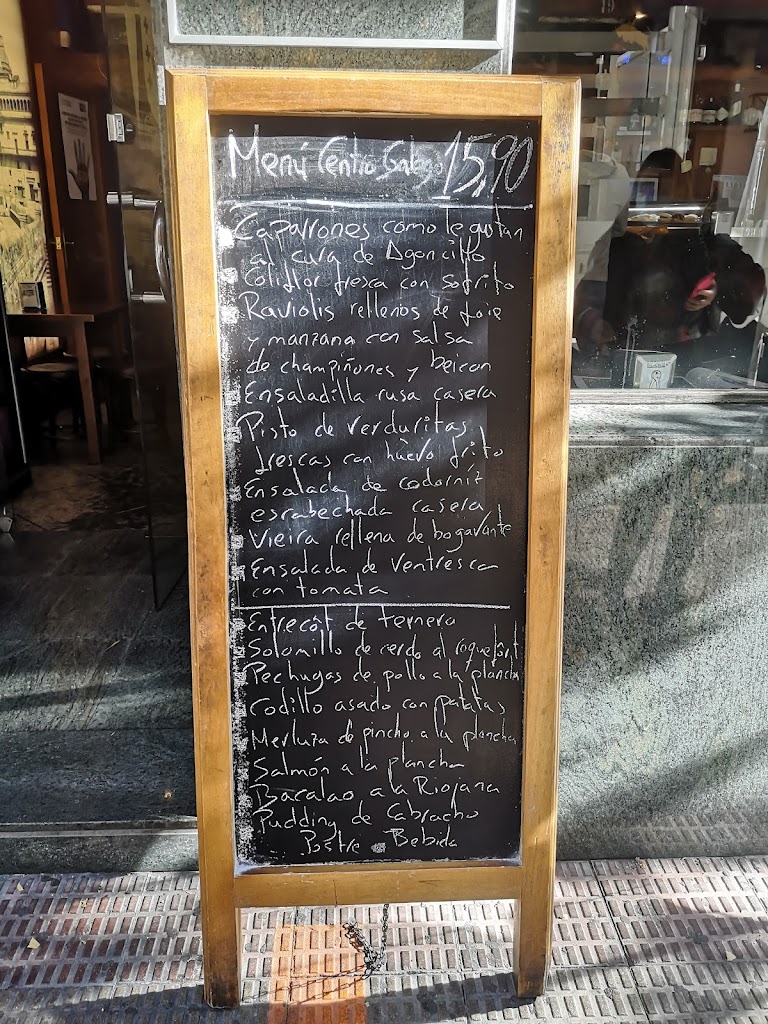 Menú Centro Galego 15,90
Caparrones como le gustan
al cura de Agoncillo
Coliflor fresca con sofrito
Raviolis rellenos de foie
y manzana con salsa
de champiñones y beicon
Ensaladilla rusa casera
Pisto de verduritas
frescas con huevo frito
Ensalada de codorniz
escabechada casera
Vieira rellena de bogavante
Ensalada de Ventresca
con tomata
Entrecôt de ternera
Solomillo de cerdo al roquefort
Pechugas de pollo a la plancha
Codillo asado con patatas
Merluza de pincho a la plancha
Salmón a la plancha
Bacalao a la Riojana
Pudding de Cabracho
Postre Bebida